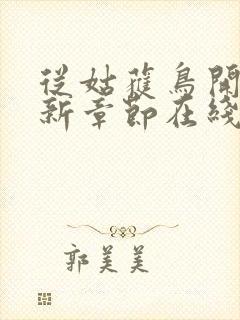 從姑蘿鳥開
新章節在綫
郭美美